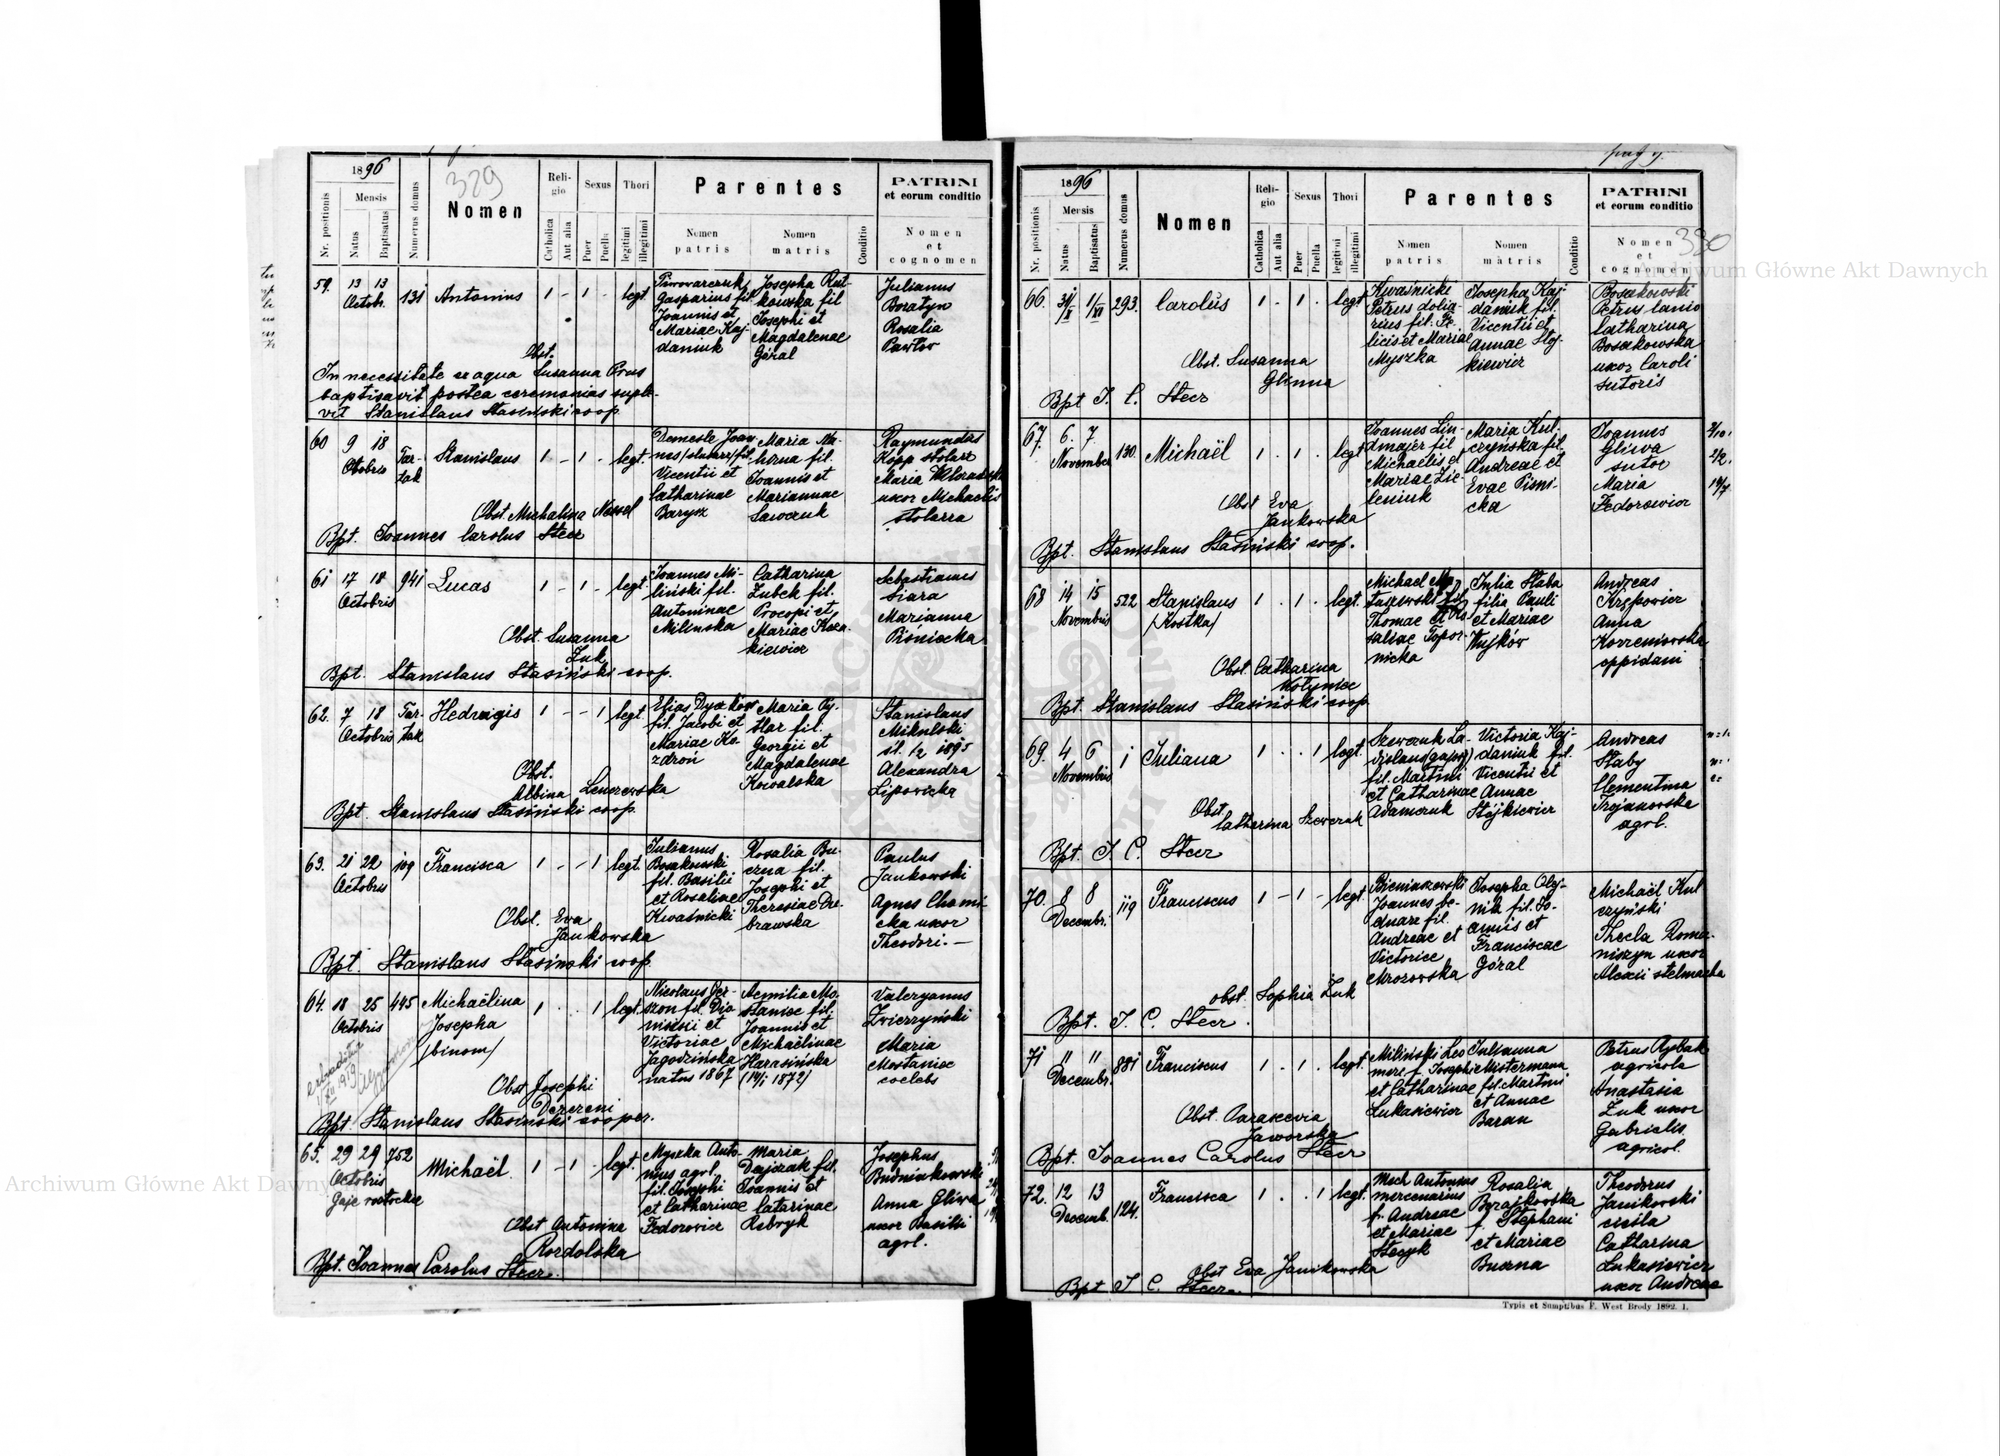 1896
329
Nr. positionis
Mensis
Natus
Baptisatus
Numerus domus
Nomen
Religio
Catholica
Aut alia
Sexus
Puer
Puella
Thori
legitimi
illegitimi
Parentes
Nomen patris
Nomen matris
Conditio
PATRINI
et eorum conditio
Nomen
et
cognomen
59. 13 13 Octob. 131 Antonius 1 - 1 - legt.
Piwowarczuk
Gasparius fil
Joannis et
Mariae Kaj-
daniuk
Josepha Rut-
kowska fil
Josephi et
Magdalenae
Góral
Julianus
Boratyn
Rosalia
Pawlov
Obst.
In necessitate ex aqua Susanna Prus
baptisavit postea ceremonias suple-
vit Stanislaus Stasiński coop.
60 9 18 Octobris Tar-tak Stanislaus 1 - 1 - legt.
Joan-
Vicentii et
Catharinae
Barysz
Maria Na-
fil.
Joannis et
Mariannae
Sawczuk
Raymundus
Kopp stolarz
Maria
uxor Michaelis
stolarza
Obst. Michalina Nessel
Bpt. Joannes Carolus Steer
61 17 18 Octobris 941 Lucas 1 - 1 - legt.
Joannes Mi-
liński fil.
Antoninae
Milinska
Catharina
Zubek fil.
Procopi et
Mariae Koza-
kiewicz
Sebastianus
Siara
Marianna
Piśniecka
Obst. Susanna
Żuk
Bpt. Stanislaus Stasiński coop.
62. 7 18 Octobris Tar-tak Hedvigis 1 - - 1 legt.
Elias
fil. Jacobi et
Mariae Ko-
zdroń
Maria
fil.
Georgii et
Magdalenae
Kowalska
Stanislaus
Mikulski
1895
Alexandra
Lipowicka
Obst.
Albina Lenczewska
Bpt. Stanislaus Stasiński coop.
63. 21 22 Octobris 109 Francisca 1 - - 1 legt.
Julianus
Boczkowski
fil. Basilii
et Rosaliae
Kwaśnicki
Rosalia Bu-
czna fil.
Josephi et
Theresiae Dę-
brawska
Paulus
Jankowski
Agnes Chomi-
cka uxor
Theodori. —
Obst. Eva
Jankowska
Bpt. Stanislaus Stasiński coop.
64. 18 25 Octobris 445 Michaëlina 1 . . 1 legt.
Josepha
/binom/
Nicolaus
fil. Dio-
nisii et
Victoriae
Jagodzińska
natus 1867
Aemilia Mo-
staniec fil.
Joannis et
Michaëlinae
Harasińska
(14/1 1872)
Valeryanus
Zwierzyński
Maria
Mostaniec
coelebs
Obst. Josephi
Bpt. Stanislaus Stasiński cooper.
65. 29 29 Octobris 752 Michaël. 1 - 1 . legt.
Gaje roztockie
Myszka Anto-
nius agol.
fil. Josephi
et Catharinae
Fedorowicz
Maria
Dajczak fil.
Joannis et
Catarinae
Rebryk
Josephus
Anna Gliwa
uxor Basilii
agol.
Obst Antonina
Rozdolska
Bpt. Joannes Carolus Steer.
pag 9.
1896
330
Nr. positionis
Mensis
Natus
Baptisatus
Numerus domus
Nomen
Religio
Catholica
Aut alia
Sexus
Puer
Puella
Thori
legitimi
illegitimi
Parentes
Nomen patris
Nomen matris
Conditio
PATRINI
et eorum conditio
Nomen
et
cognomen
66. 31/X 1/XI 293. Carolus 1 . 1 . legt
Kwaśnicki
Petrus dolia-
rius fil. Fe-
licis et Mariae
Myszka
Josepha Kaj-
daniuk fil.
Vicentii et
Annae Stoj-
kiewicz
Boczkowski
Petrus lanio
Catharina
Boczkowska
uxor Caroli
sutoris
Obst. Susanna
Glinna
Bpt J. C. Steer
67. 6. 7. November 130. Michaël 1 . 1 . legt
Joannes Lin-
dmajer fil
Michaëlis et
Mariae Zie-
leniuk
Maria Kul-
czyńska fil.
Andreae et
Evae Piśni-
cka
Joannes
Gliwa
sutor
Maria
Fedorowicz
Obst Eva
Jankowska
Bpt. Stanislaus Stasiński coop.
68 14 15 Novembris 522 Stanislaus 1 . 1 . legt.
/Kostka/
Michael
fil.
Thomae et Ro-
saliae Topor-
nicka
Julia Staba
filia Pauli
et Mariae
Wujków
Andreas
Krępowicz
Anna
Korzeniowska
oppidani
Obst. Catharina
Bpt. Stanislaus Stasiński coop
69. 4 6 Novembris 1 Juliana 1 . . 1 legt.
Szewczuk La-
dislaus
fil. Martini
et Catharinae
Adamczuk
Victoria Kaj-
daniuk fil.
Vicentii et
Annae
Stójkiewicz
Andreas
Staby
Clementina
Trojanowska
agol.
Obst.
Catharina Szewczuk
Bpt. J. C. Steer
70. 8 8 Decembr. 119 Franciscus 1 - 1 - legt
Bieniaszewski
Joannes be-
dnarz fil.
Andreae et
Victorice
Mrozowska
Josepha Olej-
nik fil. Jo-
annis et
Franciscae
Góral
Michaël Kul
czyński
Thecla
uxor
Alexii stelmacha
obst. Sophia Żuk
Bpt. J. C. Steer.
71 11 11 Decembr. 881 Franciscus 1 . 1 . legt.
Miliński Leo
merc. f. Josephi
et Catharinae
Łukasiewicz
Julianna
Mistermann
fil. Martini
et Annae
Baran
Petrus Rybak
agricola
Anastasia
Żuk uxor
Gabrielis
agricol.
Obst. Parascevia
Jaworska
Bpt. Joannes Carolus Steer
72. 12 13 Decemb. 124. Francisca 1 . . 1 legt.
Mech Antonius
mercenarius
f. Andreae
et Mariae
Stecyk
Rosalia
f. Stephani
et Mariae
Buczna
Theodorus
Janikowski
Catharina
Łukasiewicz
uxor Andreae
Obst Eva Janikowska
Bpt J C. Steer.
Typis et Sumptibus F. West Brody 1892. 1.
Archiwum Główne Akt Dawnych
Archiwum Główne Akt Dawnych